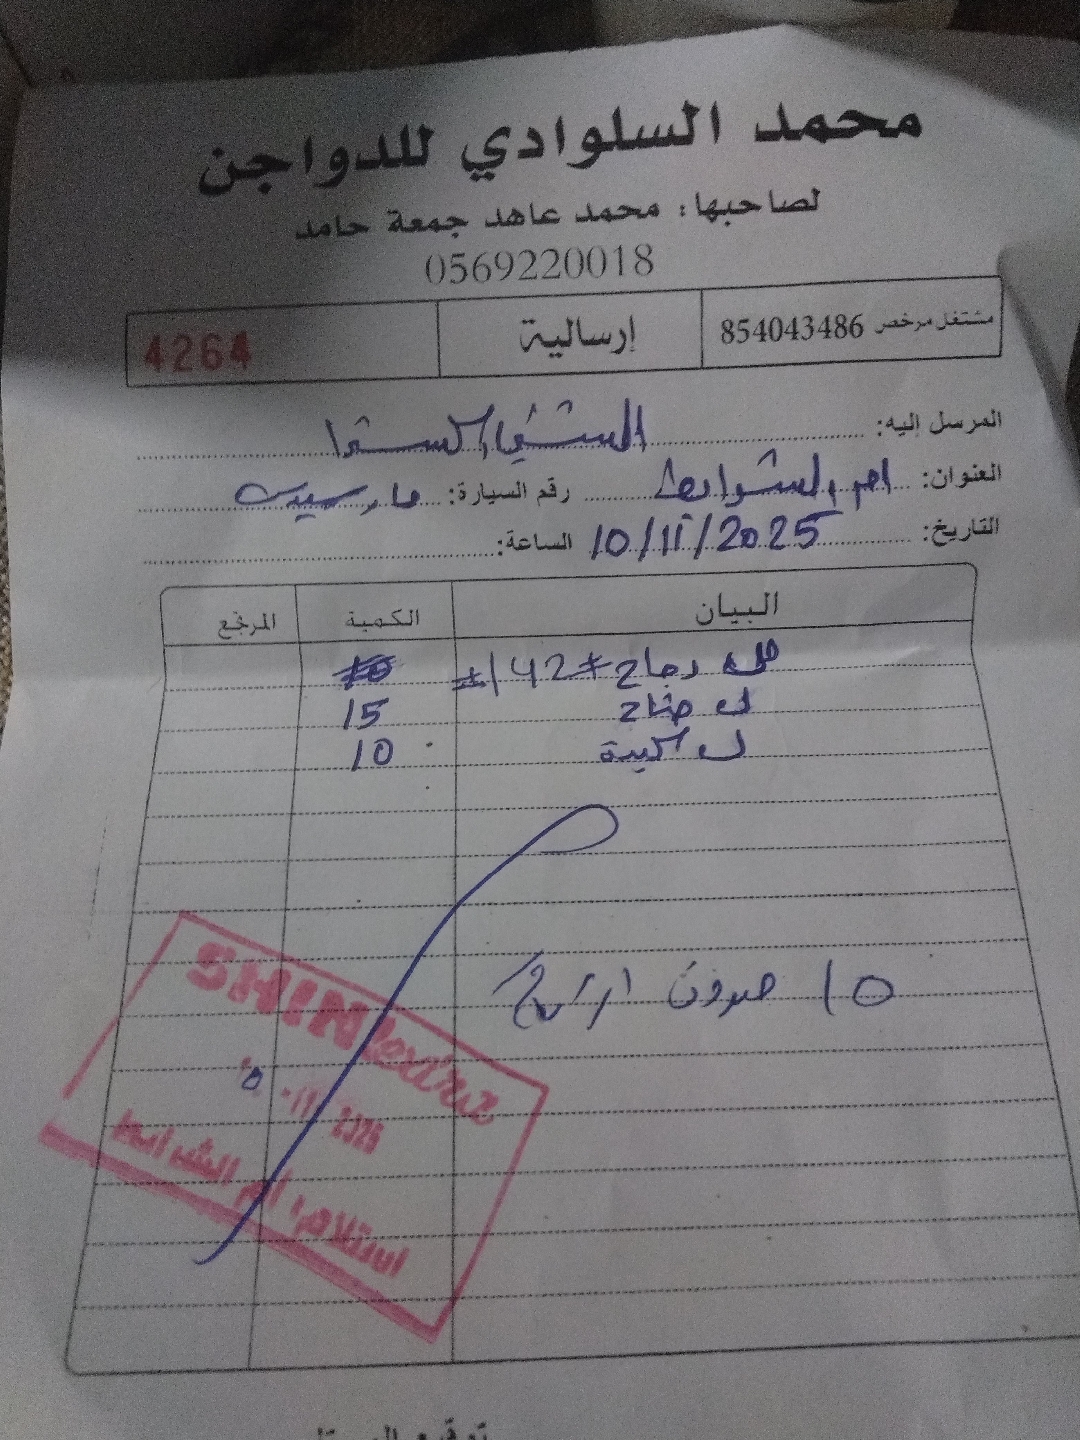 محمد السلوادي للدواجن
لصاحبها: محمد عاهد جمعة حامد
0569220018
مشتغل مرخص 854043486 إرسالية 4264
المرسل إليه:
العنوان: ام الشرايط رقم السيارة:
التاريخ: 10/11/2025 الساعة:
البيان الكمية المرتجع
دجاج #142#
ك جناح 15
ك كبدة 10
10 صدوق
SHINI
11 2025
استلام: ام الشرايط